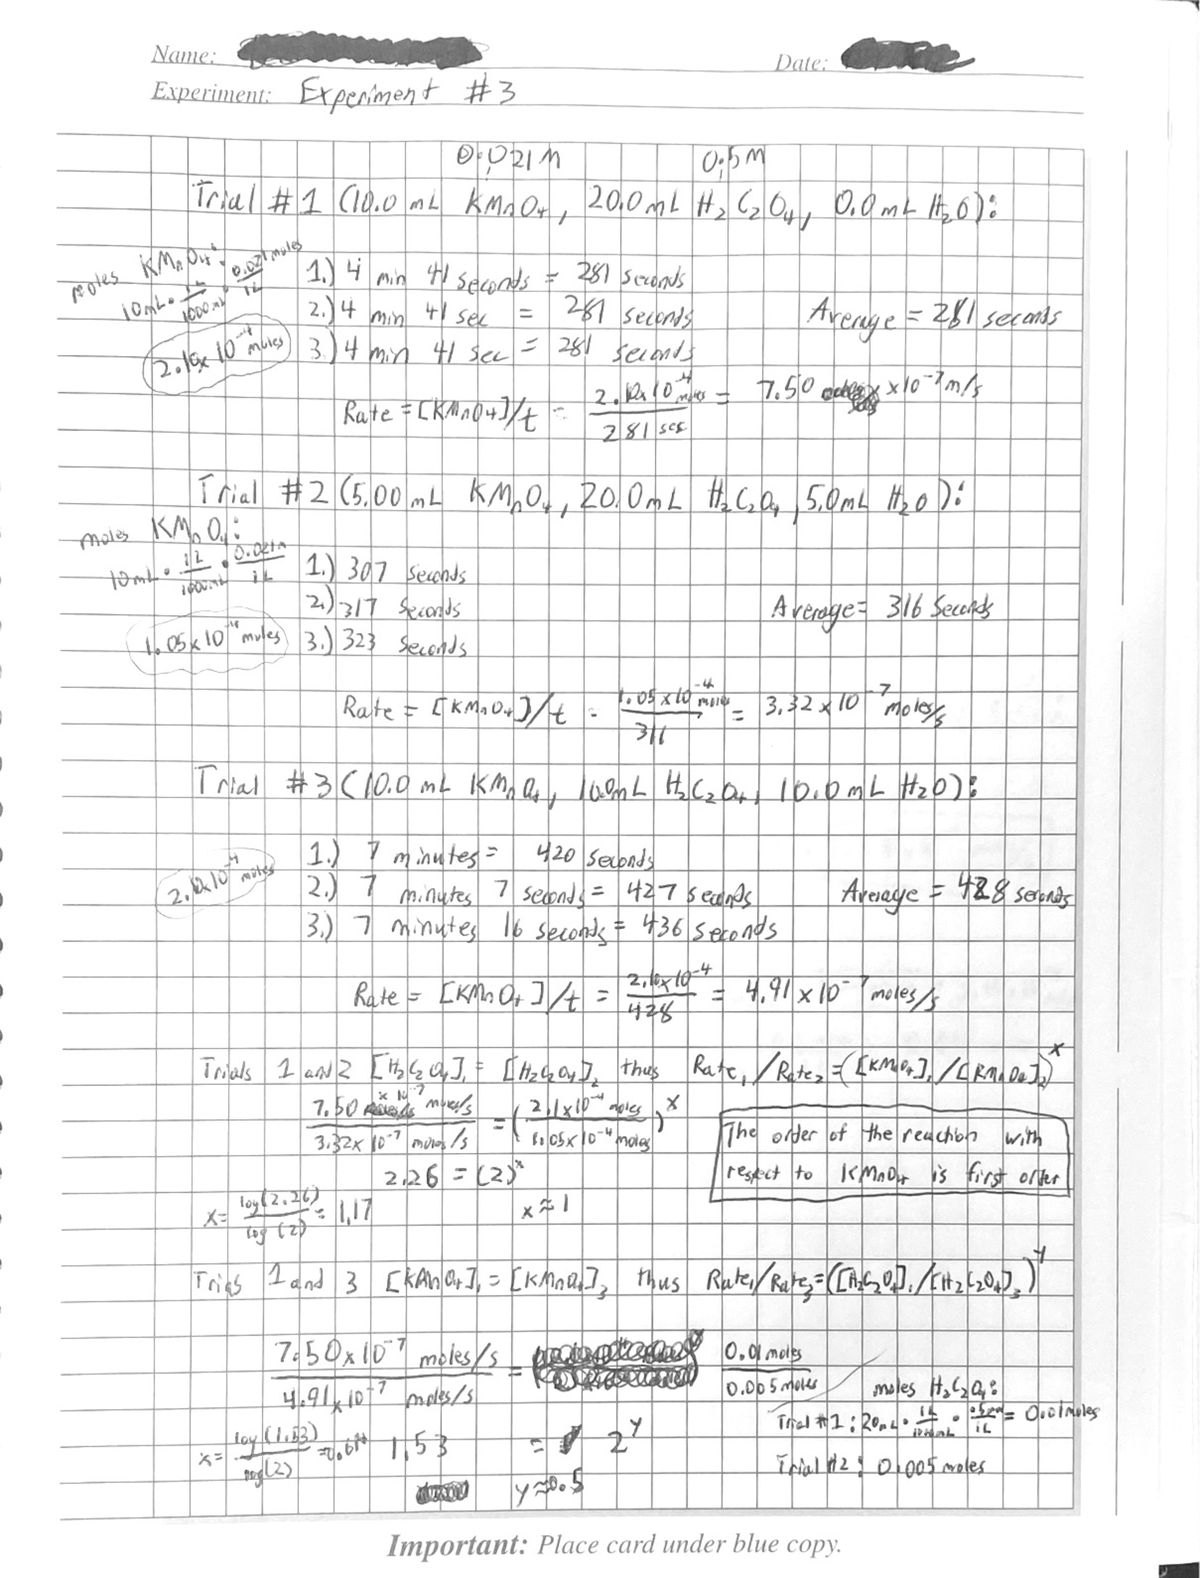 Name:
Date:
Experiment: Experiment #3
0.021M 0.5M
Trial #1 (10.0 mL KMnO4, 20.0mL H2C2O4, 0.0mL H2O):
moles KMnO4:
10mL • 1L/1000mL • 0.021moles/1L
2.10x10^-4 moles
1.) 4 min 41 seconds = 281 seconds
2.) 4 min 41 sec = 281 seconds
3.) 4 min 41 sec = 281 seconds
Average = 281 seconds
Rate = [KMnO4]/t = 2.10x10^-4 moles/281 sec = 7.50 x10^-7 m/s
Trial #2 (5.00 mL KMnO4, 20.0mL H2C2O4, 5.0mL H2O):
moles KMnO4:
10mL • 1L/1000mL • 0.021m/1L
1.05x10^-4 moles
1.) 307 seconds
2.) 317 seconds
3.) 323 seconds
Average= 316 seconds
Rate = [KMnO4]/t = 1.05x10^-4 moles/316 = 3.32x10^-7 moles/s
Trial #3 (10.0 mL KMnO4, 10.0mL H2C2O4, 10.0mL H2O):
2.10x10^-4 moles
1.) 7 minutes = 420 seconds
2.) 7 minutes 7 seconds = 427 seconds
3.) 7 minutes 16 seconds = 436 seconds
Average = 428 seconds
Rate = [KMnO4]/t = 2.10x10^-4/428 = 4.91x10^-7 moles/s
Trials 1 and 2 [H2C2O4]1 = [H2C2O4]2 thus Rate1/Rate2=([KMnO4]1/[KMnO4]2)^x
7.50 x10^-7 moles/s / 3.32x10^-7 moles/s = (2.1x10^-4 moles/1.05x10^-4 moles)^x
2.26 = (2)^x
x= log(2.26)/log(2) = 1.17
x≈1
The order of the reaction with
respect to KMnO4 is first order
Trials 1 and 3 [KMnO4]1 = [KMnO4]3 thus Rate1/Rate3=([H2C2O4]1/[H2C2O4]3)^y
7.50x10^-7 moles/s / 4.91x10^-7 moles/s = 0.01 moles/0.005 moles
moles H2C2O4:
Trial #1: 20mL • 1L/1000mL • .5m/1L = 0.01moles
Trial #2: 0.005 moles
x= log(1.53)/log(2)
1.53 = 2^y
y≈0.5
Important: Place card under blue copy.